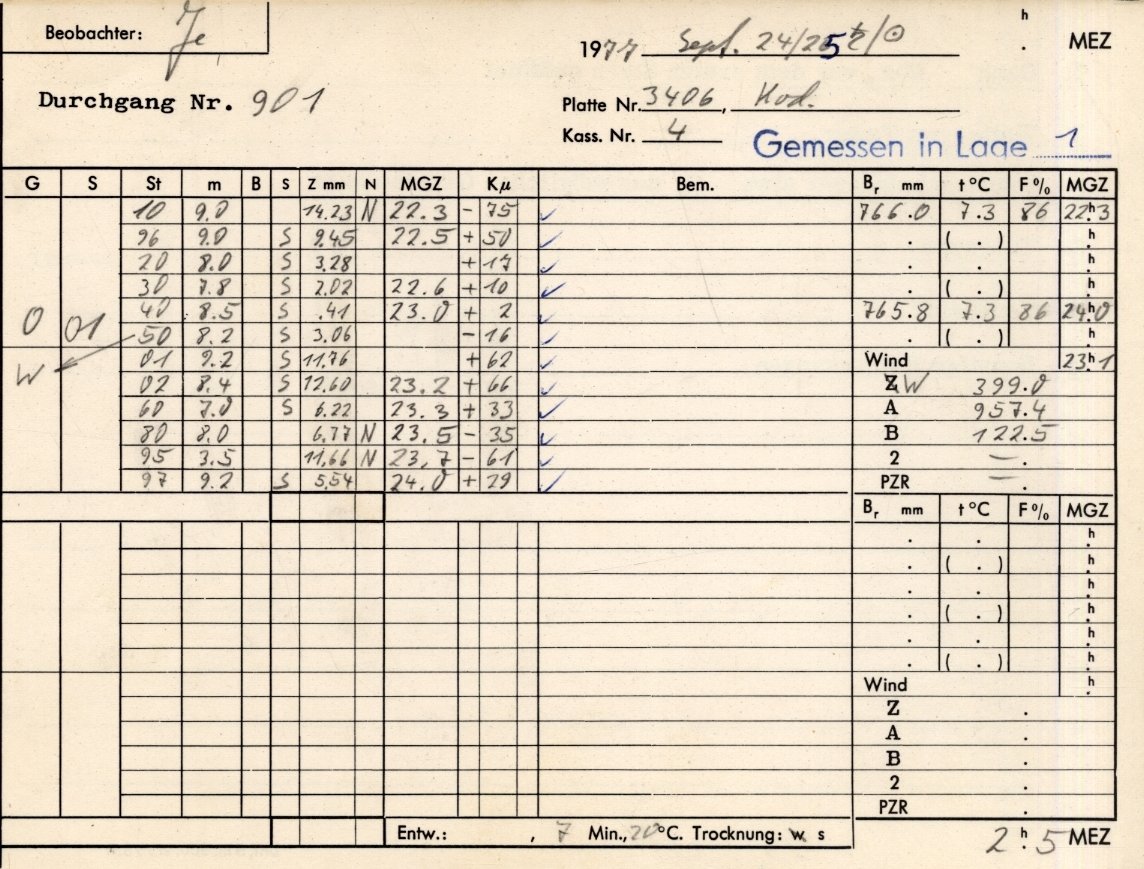 Beobachter: Je
h
1977 Sept. 24/25 . MEZ
Durchgang Nr. 901
Platte Nr. 3406, Kod.
Kass. Nr. 4
Gemessen in Lage 1
G S St m B S Z mm N MGZ Kµ Bem. Br mm t °C F % MGZ
10 9.0 14.23 N 22.3 - 75 ✓ 766.0 7.3 86 22h.3
96 9.0 S 9.45 22.5 + 50 ✓ . ( . ) h.
20 8.0 S 3.28 + 17 ✓ . . h.
30 7.8 S 2.02 22.6 + 10 ✓ . ( . ) h.
0 01 40 8.5 S .41 23.0 + 2 ✓ 765.8 7.3 86 24h.0
50 8.2 S 3.06 - 16 ✓ . ( . ) h.
W 01 9.2 S 11.76 + 62 ✓ Wind 23h.1
02 8.4 S 12.60 23.2 + 66 ✓ Z W 399.0
60 7.0 S 6.22 23.3 + 33 ✓ A 957.4
80 8.0 6.77 N 23.5 - 35 ✓ B 122.5
95 3.5 11.66 N 23.7 - 61 ✓ 2 — .
97 9.2 S 5.54 24.0 + 29 ✓ PZR — .
Br mm t °C F % MGZ
. . h.
. ( . ) h.
. . h.
. ( . ) h.
. . h.
. ( . ) h.
Wind h.
Z .
A .
B .
2 .
PZR .
Entw.: , 7 Min., 20°C. Trocknung: w s
2h.5 MEZ